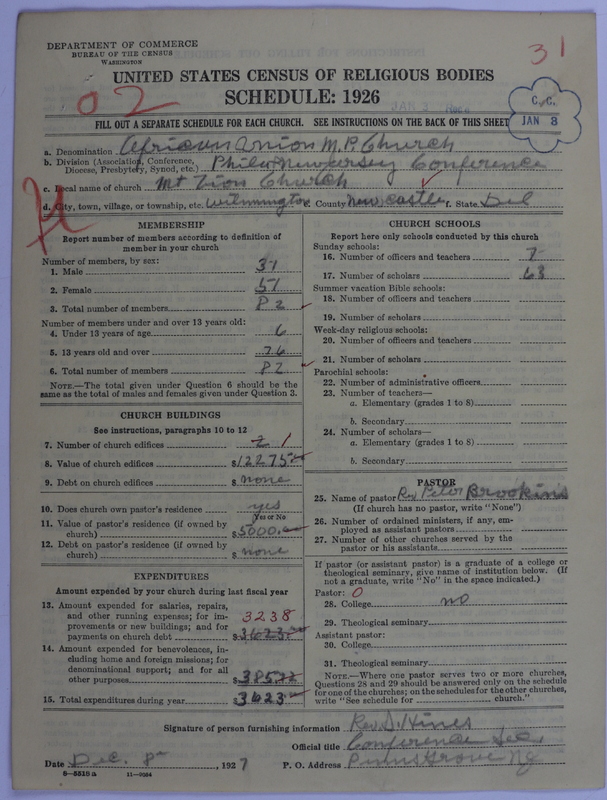 DEPARTMENT OF COMMERCE
BUREAU OF THE CENSUS
WASHINGTON
31
UNITED STATES CENSUS OF RELIGIOUS BODIES
SCHEDULE: 1926
02
JAN 3 Rec'd
C. C.
JAN 8
FILL OUT A SEPARATE SCHEDULE FOR EACH CHURCH. SEE INSTRUCTIONS ON THE BACK OF THIS SHEET
a. Denomination African Union M. P. Church
b. Division (Association, Conference, Diocese, Presbytery, Synod, etc.) Phila New Jersey Conference
c. Local name of church Mt Zion Church
d. City, town, village, or township, etc. Wilmington e. County New Castle f. State Del
MEMBERSHIP
Report number of members according to definition of member in your church
Number of members, by sex:
1. Male 31
2. Female 51
3. Total number of members 82
Number of members under and over 13 years old:
4. Under 13 years of age 6
5. 13 years old and over 76
6. Total number of members 82
NOTE.—The total given under Question 6 should be the same as the total of males and females given under Question 3.
CHURCH BUILDINGS
See instructions, paragraphs 10 to 12
7. Number of church edifices 2 1
8. Value of church edifices $12275.00
9. Debt on church edifices $ none
10. Does church own pastor's residence yes
Yes or No
11. Value of pastor's residence (if owned by church) $5000.00
12. Debt on pastor's residence (if owned by church) $ none
EXPENDITURES
Amount expended by your church during last fiscal year
13. Amount expended for salaries, repairs, and other running expenses; for improvements or new buildings; and for payments on church debt 3238 $3623
14. Amount expended for benevolences, including home and foreign missions; for denominational support; and for all other purposes $385
15. Total expenditures during year $3623
CHURCH SCHOOLS
Report here only schools conducted by this church
Sunday schools:
16. Number of officers and teachers 7
17. Number of scholars 63
Summer vacation Bible schools:
18. Number of officers and teachers
19. Number of scholars
Week-day religious schools:
20. Number of officers and teachers
21. Number of scholars
Parochial schools:
22. Number of administrative officers
23. Number of teachers—
a. Elementary (grades 1 to 8)
b. Secondary
24. Number of scholars—
a. Elementary (grades 1 to 8)
b. Secondary
PASTOR
25. Name of pastor Rev Peter Brookins
(If church has no pastor, write "None")
26. Number of ordained ministers, if any, employed as assistant pastors
27. Number of other churches served by the pastor or his assistants
If pastor (or assistant pastor) is a graduate of a college or theological seminary, give name of institution below. (If not a graduate, write "No" in the space indicated.)
Pastor: 0
28. College no
29. Theological seminary
Assistant pastor:
30. College
31. Theological seminary
NOTE.—Where one pastor serves two or more churches, Questions 28 and 29 should be answered only on the schedule for one of the churches; on the schedules for the other churches, write "See schedule for church."
Signature of person furnishing information Rev S. Hines
Official title Conference Sec
Date Dec. 8th, 1927 P. O. Address Penns Grove NJ
8—5518 a 11—9034